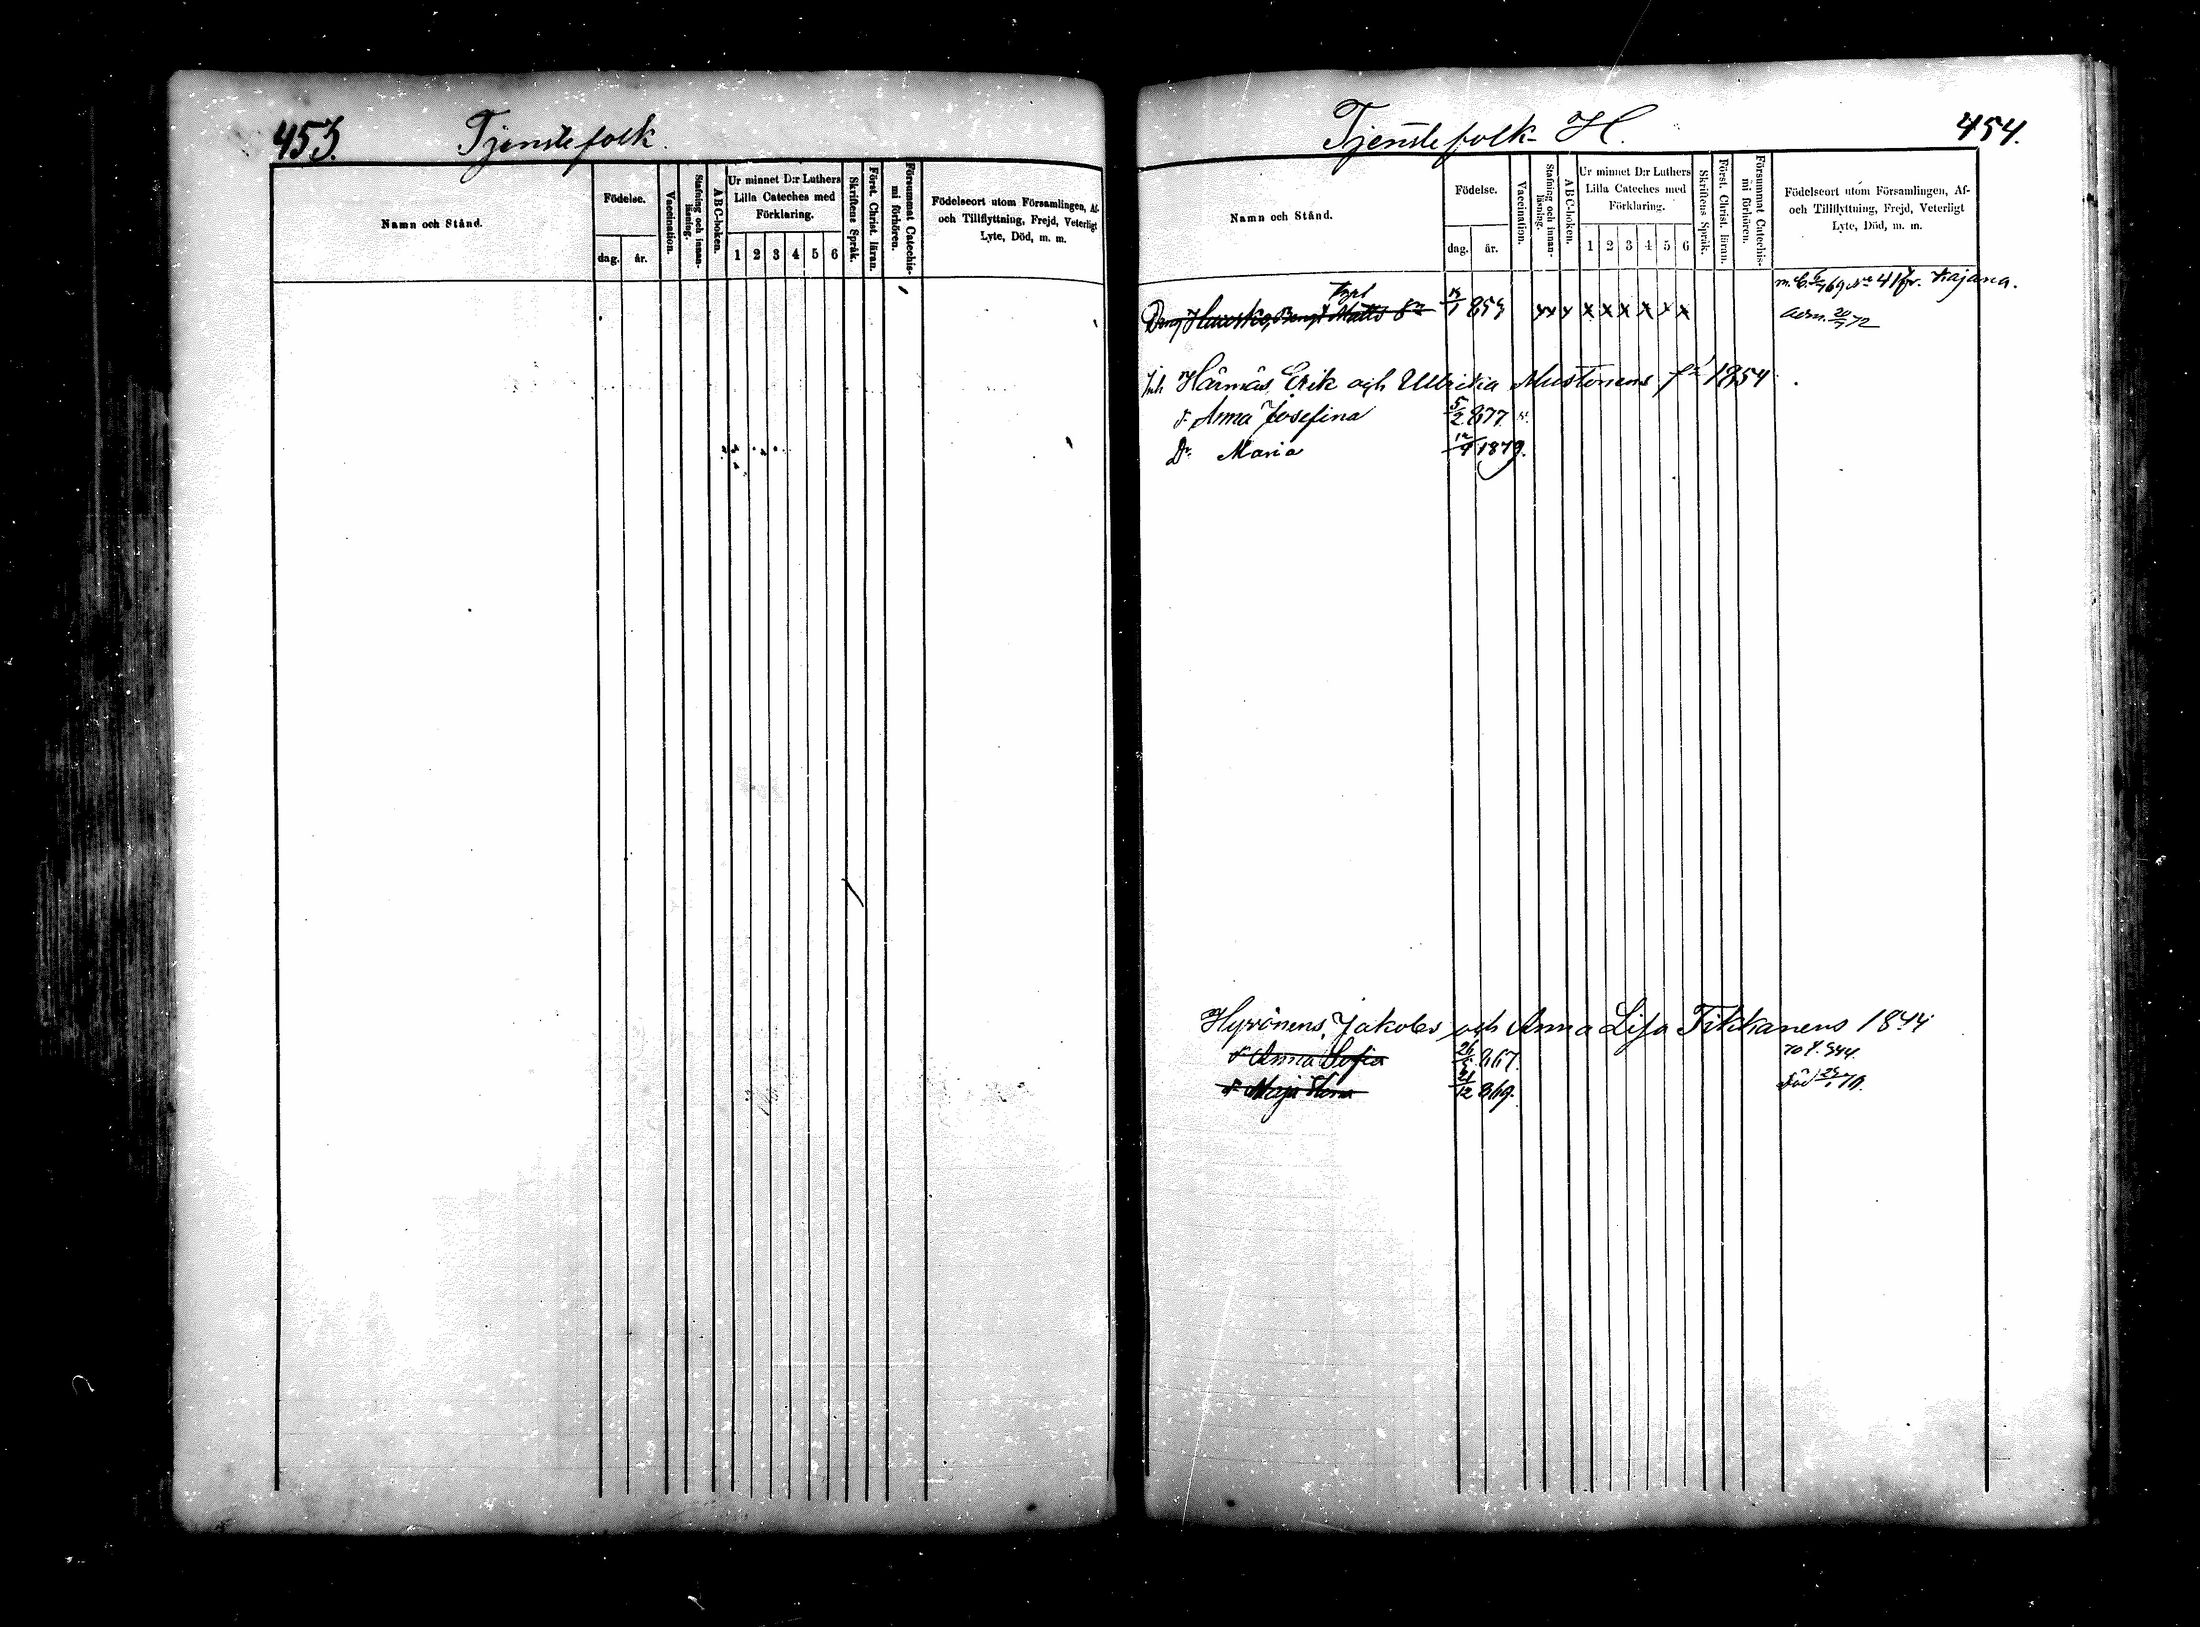 453.
Tjenstefolk.
Namn och Stånd.
Födelse.
dag.
år.
Vaccination.
Stafning och innan-
läsning.
ABC-boken.
Ur minnet D:r Luthers
Lilla Cateches med
Förklaring.
1 2 3 4 5 6
Skriftens Språk.
Först. Christ. läran.
Försummat Catechis-
mi förhören.
Födelseort utom Församlingen, Af-
och Tillflyttning, Frejd, Veterligt
Lyte, Död, m. m.
Tjenstefolk H.
454.
Namn och Stånd.
Födelse.
dag.
år.
Vaccination.
Stafning och innan-
läsning.
ABC-boken.
Ur minnet D:r Luthers
Lilla Cateches med
Förklaring.
1 2 3 4 5 6
Skriftens Språk.
Först. Christ. läran.
Försummat Catechis-
mi förhören.
Födelseort utom Församlingen, Af-
och Tillflyttning, Frejd, Veterligt
Lyte, Död, m. m.
69 No 41 fr. Kajana.
Matts 1 853 x x x x x x
20/ 72
Härmäs Erik och Ullrika Mustonens 1854
d. Anna Josefina 5/2 877
Do Maria 1879.
Hyvönens, Jakobs och Anna Lisa Tikkanens 1844
d. Anna Sofia 26/ 867. 944.
d. Maja 21/12 869. död 70.